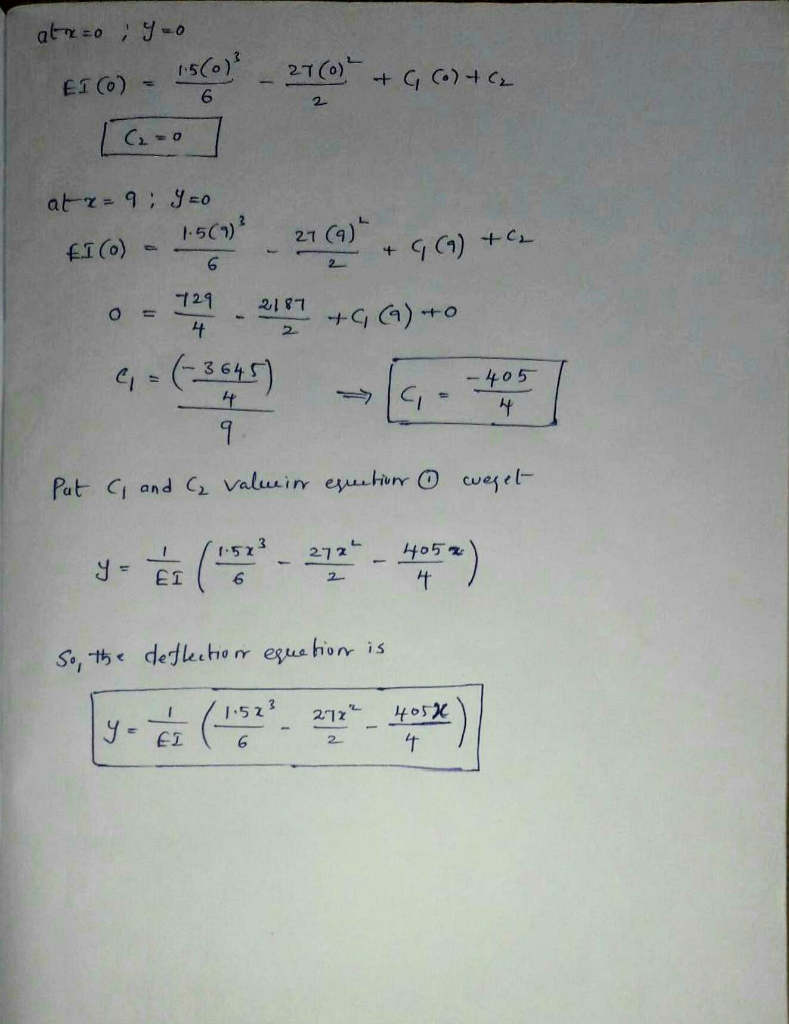 at x=0 ; y=0
EI(0) = 1.5(0)³/6 - 27(0)²/2 + C₁(0) + C₂
C₂ = 0
at x = 9 ; y=0
EI(0) = 1.5(9)³/6 - 27(9)²/2 + C₁(9) + C₂
0 = 729/4 - 2187/2 + C₁(9) + 0
C₁ = (-3645/4)/9 ⇒ C₁ = -405/4
Put C₁ and C₂ value in equation ① we get
y = 1/EI (1.5x³/6 - 27x²/2 - 405x/4)
So, the deflection equation is
y = 1/EI (1.5x³/6 - 27x²/2 - 405x/4)